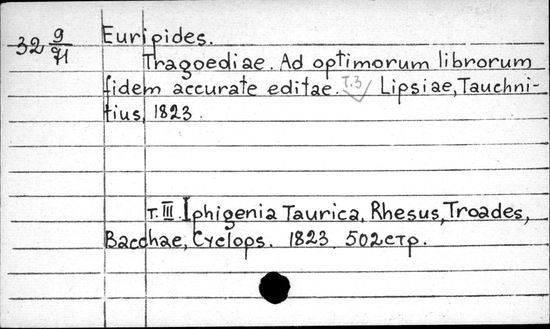 32 9/71 Euripides.
Tragoediae. Ad optimorum librorum
fidem accurate editae. т.3 Lipsiae, Tauchni-
tius, 1823.
т. III. Iphigenia Taurica, Rhesus, Troades,
Bacchae, Cyclops. 1823 502стр.